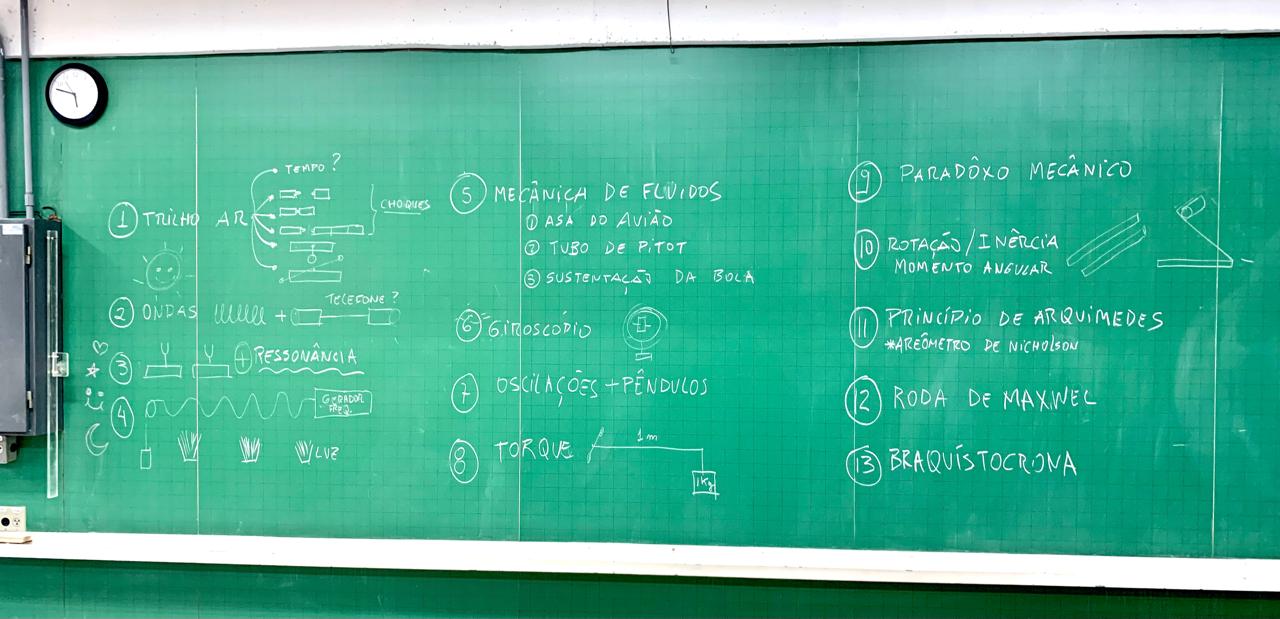 TEMPO?
CHOQUES
① TRILHO AR
② ONDAS + TELEFONE?
③ + RESSONÂNCIA
④ GERADOR
FREQ.
LUZ
⑤ MECÂNICA DE FLUÍDOS
① ASA DO AVIÃO
② TUBO DE PITOT
③ SUSTENTAÇÃO DA BOLA
⑥ GIROSCÓDIO
⑦ OSCILAÇÕES + PÊNDULOS
⑧ TORQUE 1m
1Kg
⑨ PARADÔXO MECÂNICO
⑩ ROTAÇÃO/INÊRCIA
MOMENTO ANGULAR
⑪ PRINCÍPIO DE ARQUIMEDES
*AREÔMETRO DE NICHOLSON
⑫ RODA DE MAXWEL
⑬ BRAQUÍSTOCRONA